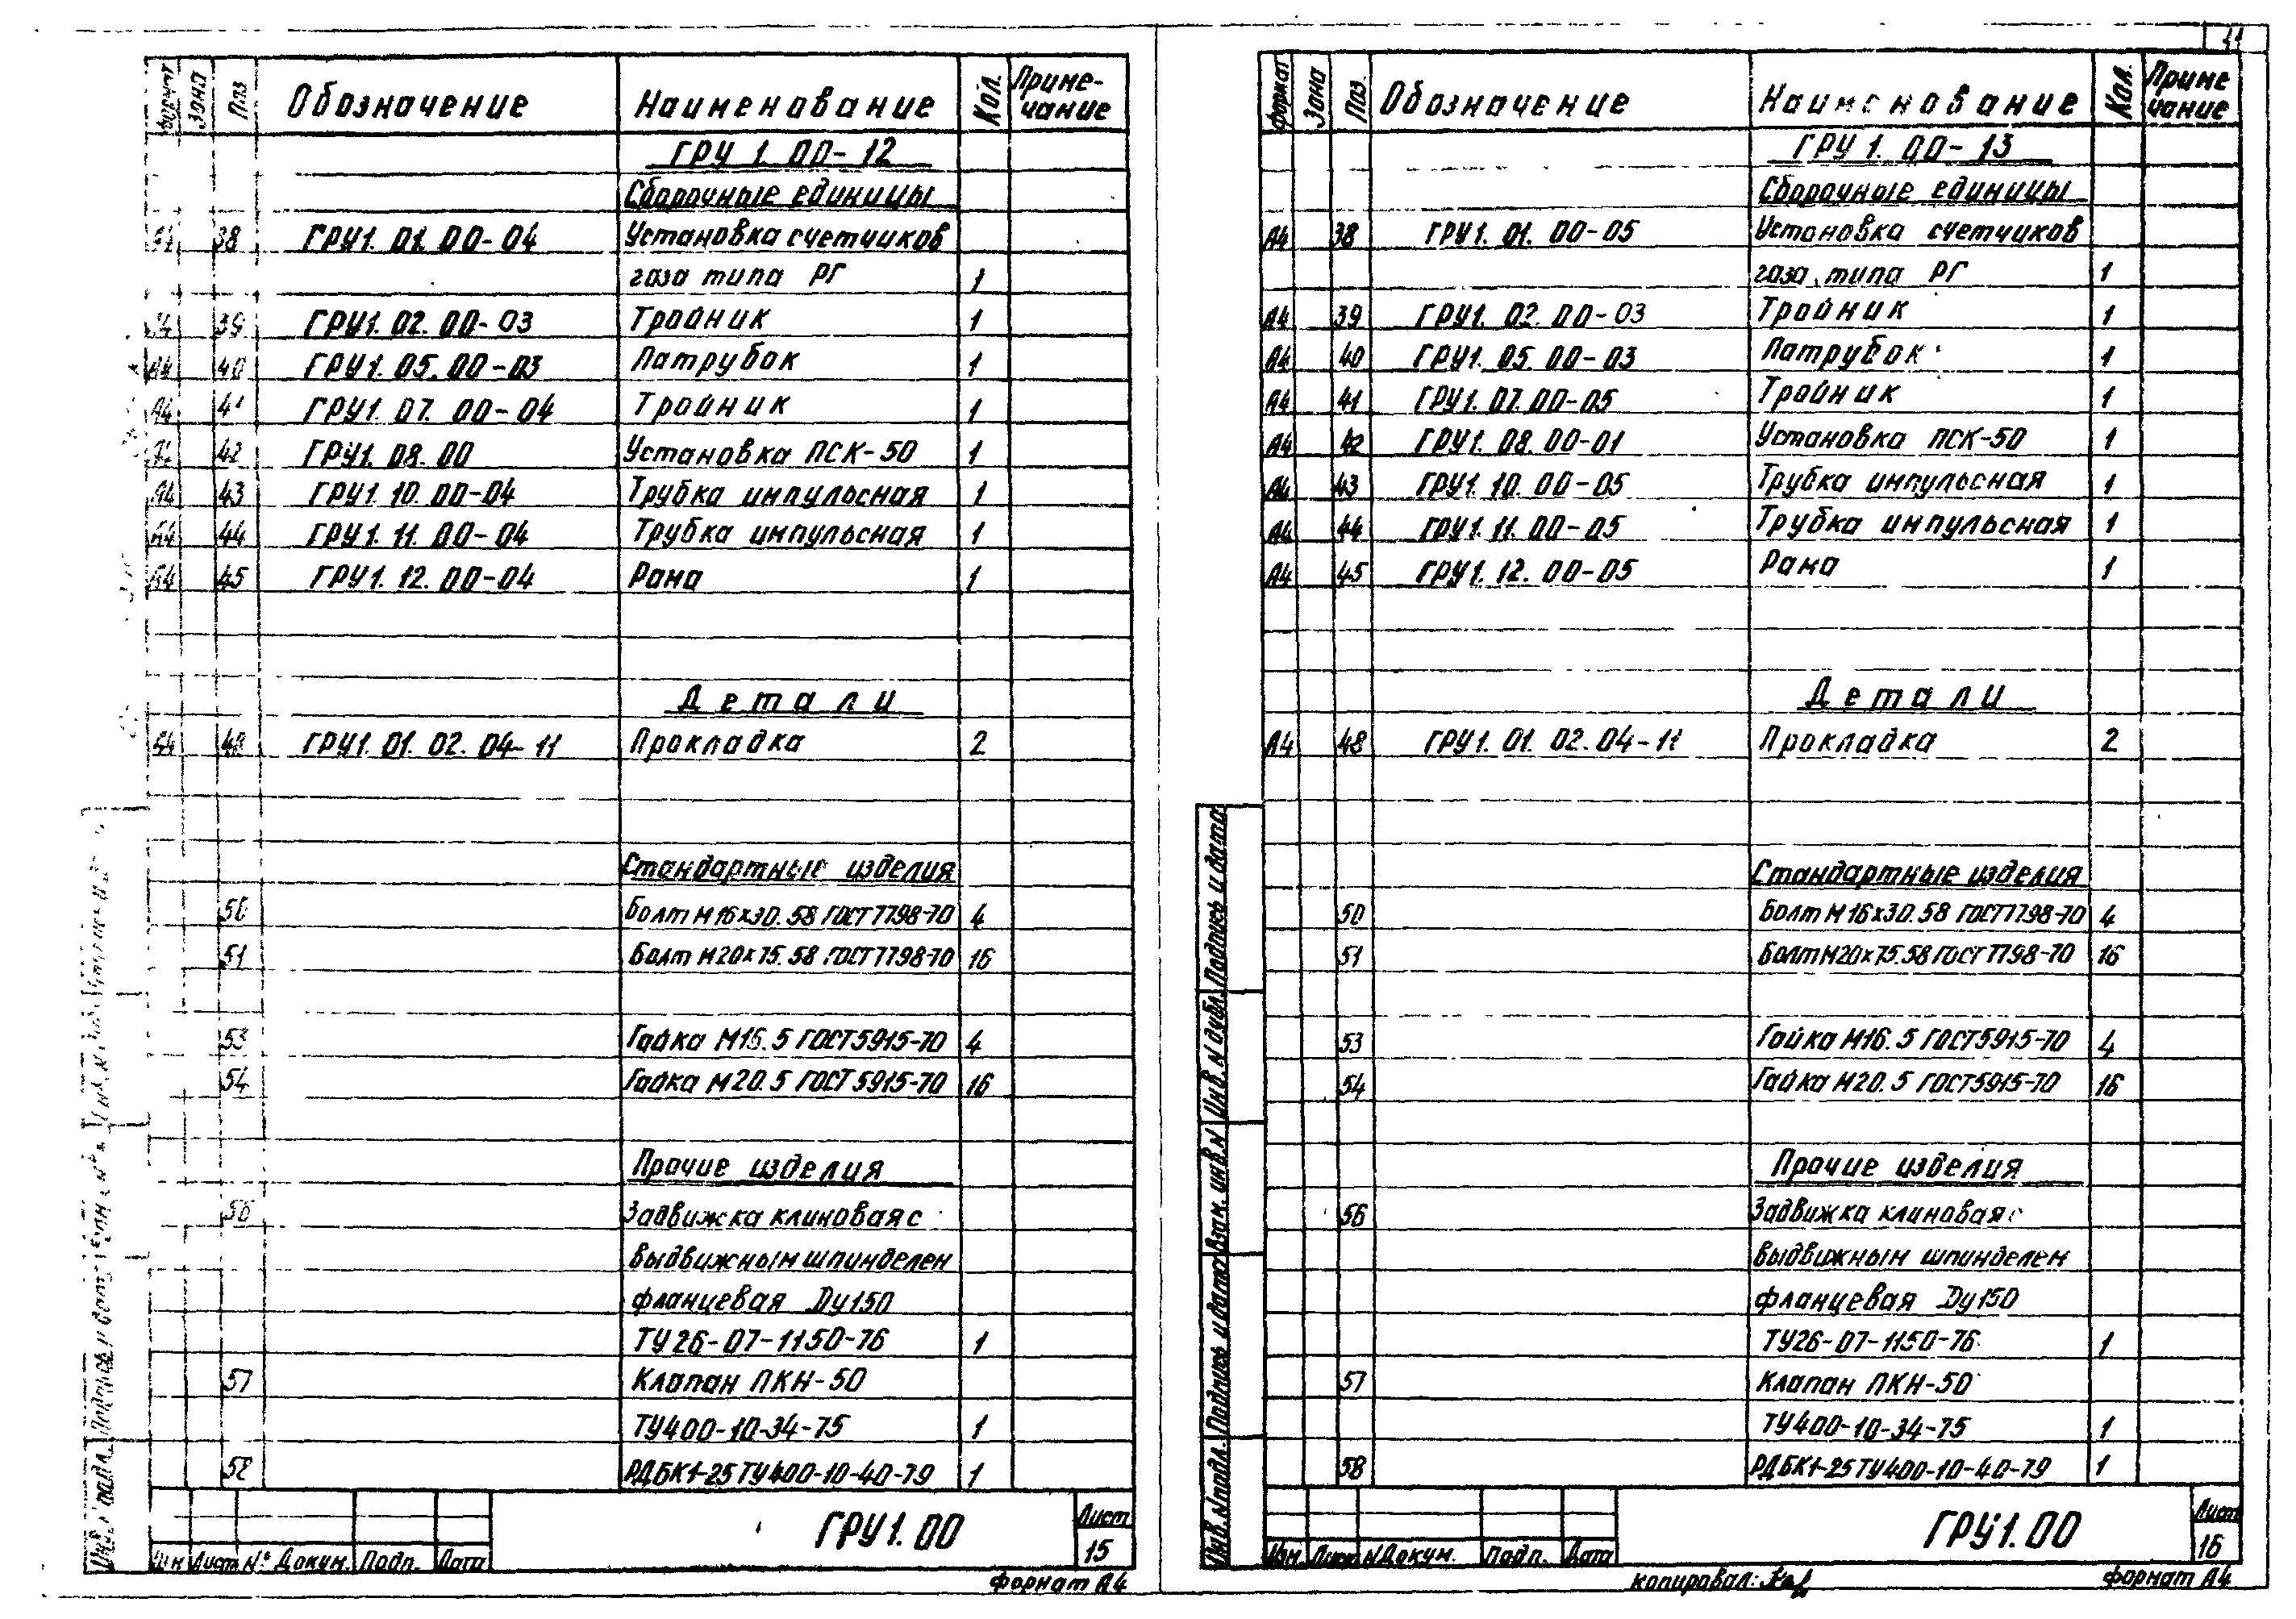 Формат Зона Поз Обозначение Наименование Кол. Приме-
чание
ГРУ 1. 00-12
Сборочные единицы
А4 38 ГРУ1. 01. 00-04 Установка счетчиков
газа типа РГ 1
А4 39 ГРУ1. 02. 00-03 Тройник 1
А4 40 ГРУ1. 05. 00-03 Патрубок 1
А4 41 ГРУ1. 07. 00-04 Тройник 1
А4 42 ГРУ1. 08. 00 Установка ПСК-50 1
А4 43 ГРУ1. 10. 00-04 Трубка импульсная 1
А4 44 ГРУ1. 11. 00-04 Трубка импульсная 1
А4 45 ГРУ1. 12. 00-04 Рама 1
Детали
А4 48 ГРУ1. 01. 02. 04-11 Прокладка 2
Стандартные изделия
50 Болт М16х30.58 ГОСТ7798-70 4
51 Болт М20х75.58 ГОСТ7798-70 16
53 Гайка М16.5 ГОСТ5915-70 4
54 Гайка М20.5 ГОСТ5915-70 16
Прочие изделия
56 Задвижка клиновая с
выдвижным шпинделем
фланцевая Ду150
ТУ26-07-1150-76 1
57 Клапан ПКН-50
ТУ400-10-34-75 1
58 РДБК1-25 ТУ400-10-40-79 1
Изм Лист № Докум. Подп. Дата
ГРУ1.00
Лист
15
Формат А4
Формат Зона Поз. Обозначение Наименование Кол. Приме
чание
ГРУ 1. 00-13
Сборочные единицы
А4 38 ГРУ1. 01. 00-05 Установка счетчиков
газа типа РГ 1
А4 39 ГРУ1. 02. 00-03 Тройник 1
А4 40 ГРУ1. 05. 00-03 Патрубок 1
А4 41 ГРУ1. 07. 00-05 Тройник 1
А4 42 ГРУ1. 08. 00-01 Установка ПСК-50 1
А4 43 ГРУ1. 10. 00-05 Трубка импульсная 1
А4 44 ГРУ1. 11. 00-05 Трубка импульсная 1
А4 45 ГРУ1. 12. 00-05 Рама 1
Детали
А4 48 ГРУ1. 01. 02. 04-11 Прокладка 2
Стандартные изделия
50 Болт М16х30.58 ГОСТ7798-70 4
51 Болт М20х75.58 ГОСТ7798-70 16
53 Гайка М16.5 ГОСТ5915-70 4
54 Гайка М20.5 ГОСТ5915-70 16
Прочие изделия
56 Задвижка клиновая с
выдвижным шпинделем
фланцевая Ду150
ТУ26-07-1150-76 1
57 Клапан ПКН-50
ТУ400-10-34-75 1
58 РДБК1-25 ТУ400-10-40-79 1
Инв. N подл. Подпись и дата Взам. инв. N Инв. N дубл. Подпись и дата
Изм. Лист N Докум. Подп. Дата
ГРУ1.00
Лист
16
копировал:
Формат А4